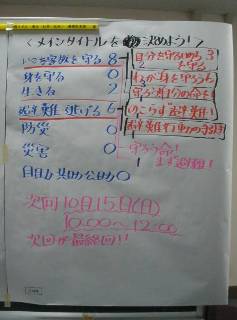 〈メインタイトルを決めよう！〉
いのち家族を守る 8
自分を守るいのち 3
を守る
身を守る 0
わが身を守ろう 6
生きる 2
守ろう自分の命を！
避難 逃げる 6
のこらず避難！
避難行動
防災 0
守ろう命！
1
災害 0
まず避難！
自助 共助 公助 0
次回 10月15日(日)
10:00～12:00
次回が最終回!!